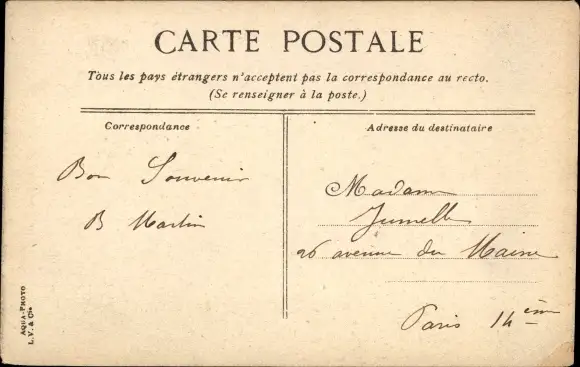 CARTE POSTALE
Tous les pays étrangers n'acceptent pas la correspondance au recto.
(Se renseigner à la poste.)
Correspondance
Adresse du destinataire
Bon Souvenir
B Martin
Madame
Jumelle
26 avenue du Maine
Paris 14 ème
AQUA-PHOTO
L. V. & Cie